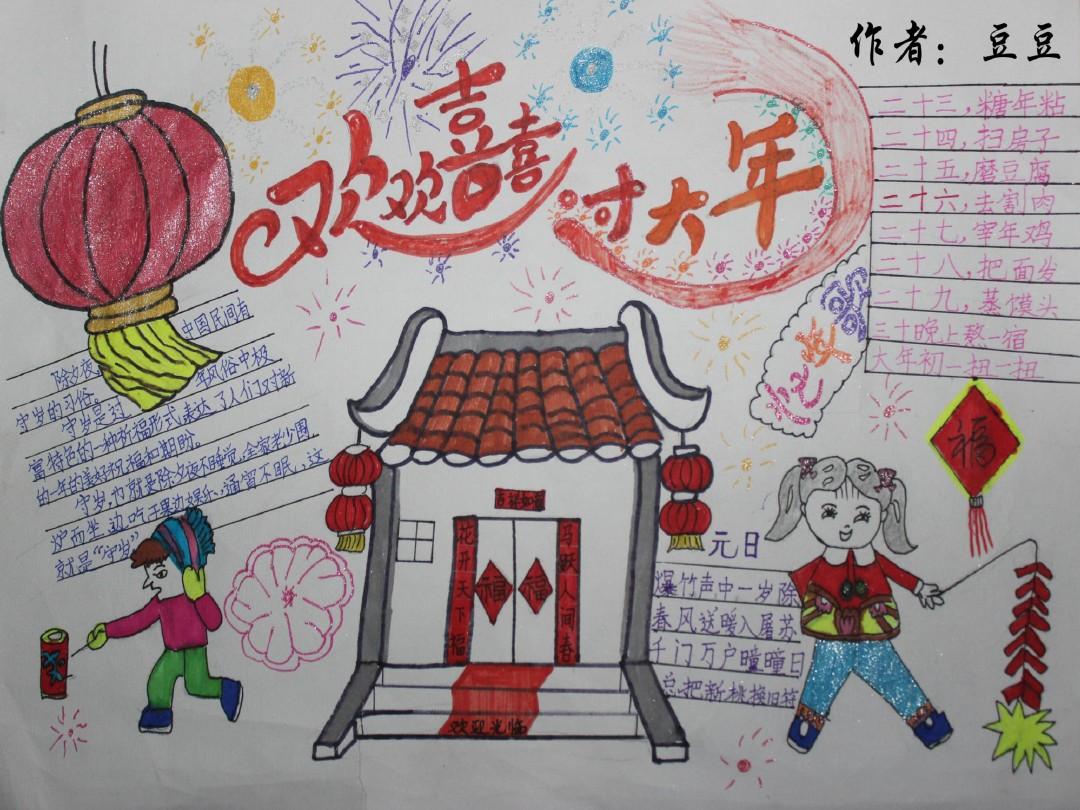 作者：豆豆
欢欢喜喜过大年
二十三，糖年粘
二十四，扫房子
二十五，磨豆腐
二十六，去割肉
二十七，宰年鸡
二十八，把面发
二十九，蒸馍头
三十晚上熬一宿
大年初一扭一扭
中国民间有
除夕夜
守岁的习俗。
守岁是对 年风俗中极
富特色的一种祈福形式表达了人们对新
的一年的美好祝福和期盼。
守岁，也就是除夕夜不睡觉，全家老少围
炉而坐，边吃干果边娱乐，通宵不眠，这
就是“守岁”
福
吉祥如意
花开天下福
福 福
马跃人间春
欢迎光临
元日
爆竹声中一岁除
春风送暖入屠苏
千门万户曈曈日
总把新桃换旧符